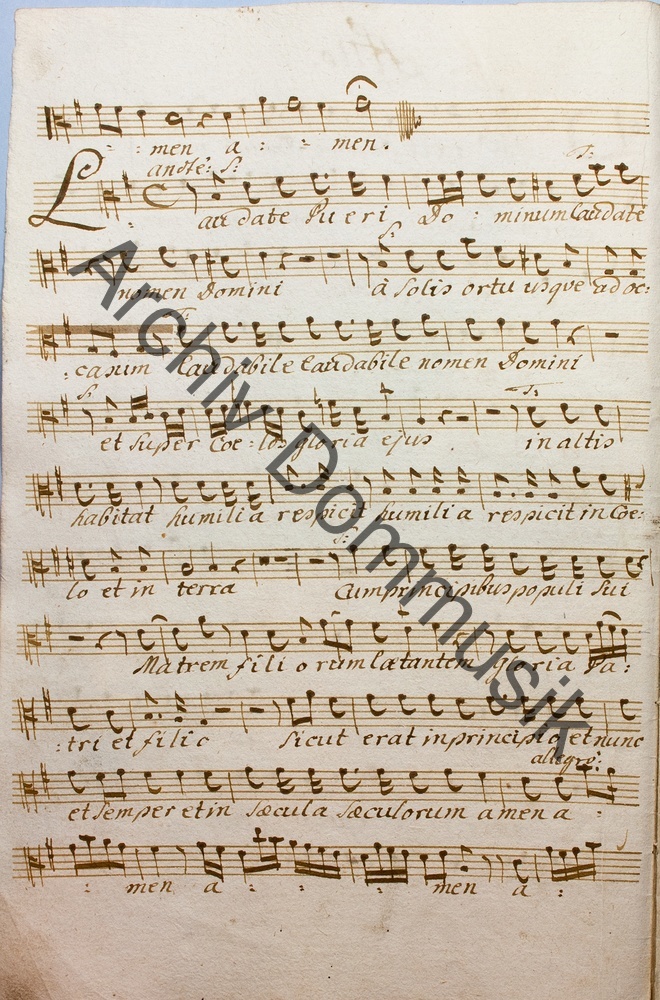 : men a : : men.
andte: S: T:
Laudate Pueri Do : minum Laudate
S:
nomen Domini à Solis ortu usque ad oc:
T:
:casum laudabile laudabile nomen Domini
S: T:
et super Coe:los gloria ejus. in altis
habitat humilia respicit humilia respicit in Coe:
S:
lo et in terra Cum principibus populi sui
Matrem filiorum lætantem gloria Pa:
:tri et filio Sicut erat in principio, et nunc
allegro:
et semper et in sæcula sæculorum amen a :
: men a : : men a :
Archiv Dommusik